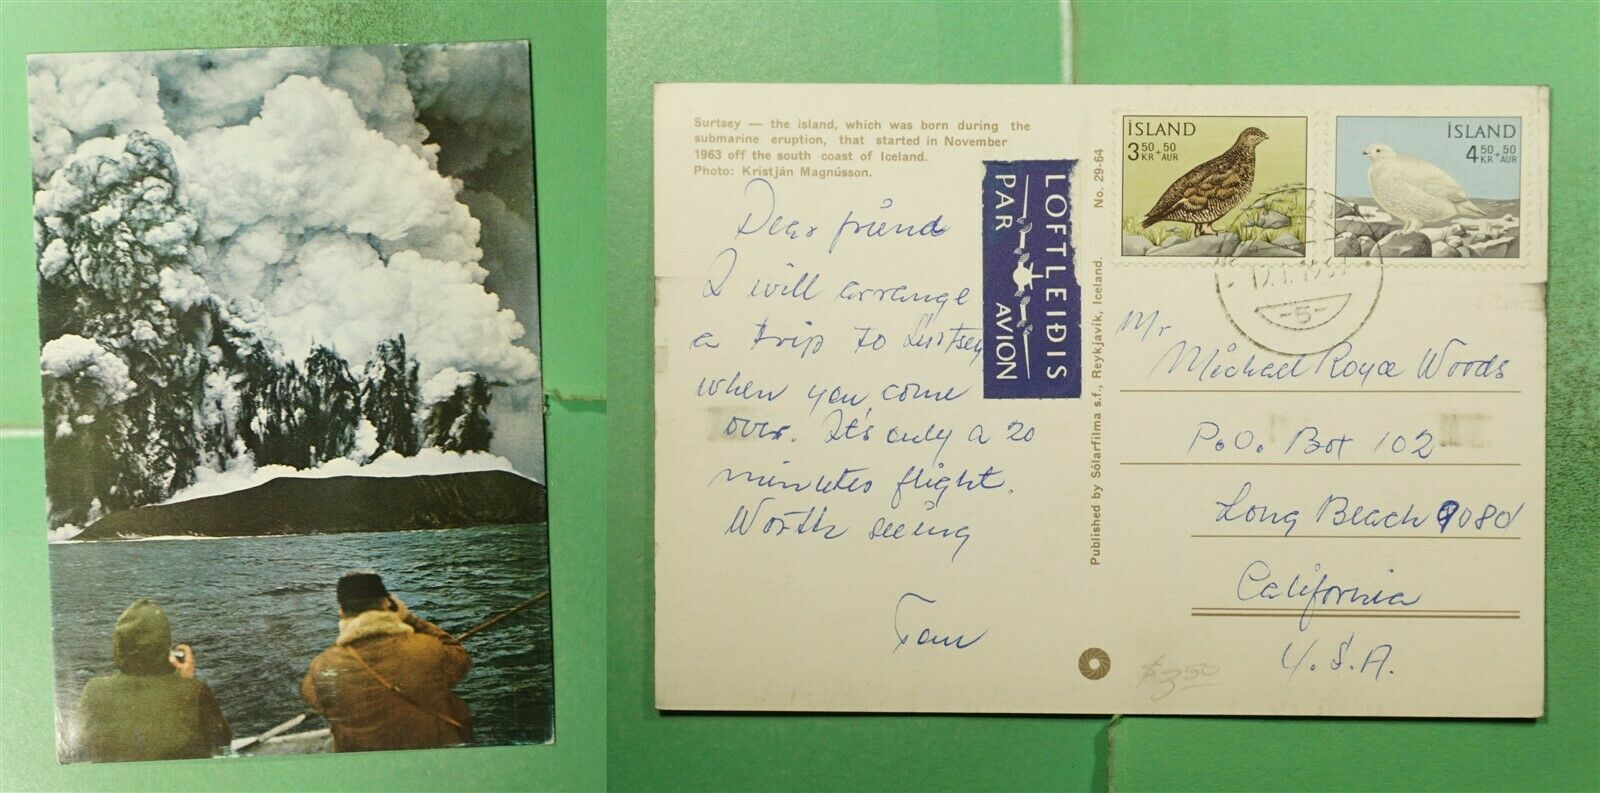 Surtsey — the island, which was born during the
submarine eruption, that started in November
1963 off the south coast of Iceland.
Photo: Kristján Magnússon.
Dear friend
I will arrange
a trip to Surtsey
when you come
over. It's only a 20
minutes flight.
Worth seeing
Tom
LOFTLEIÐIS
PAR AVION
No. 29-64
Published by Sólarfilma s.f., Reykjavík, Iceland.
ÍSLAND
3 50 + 50
KR AUR
ÍSLAND
4 50 + 50
KR AUR
-5-
Mr
Michael Royce Woods
P.O. Box 102
Long Beach 9080
California
U.S.A.
$3.50